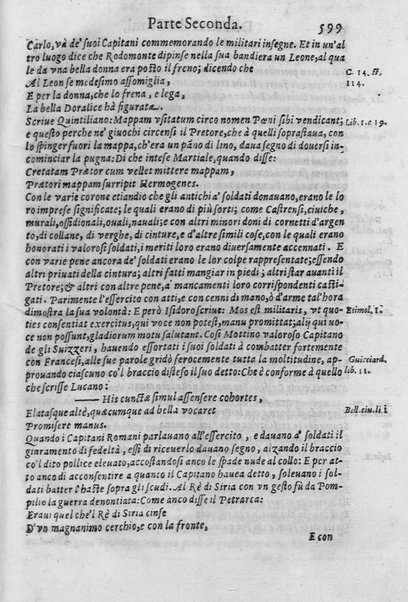 Parte Seconda. 599
Carlo, và de' suoi Capitani commemorando le militari insegne. Et in un'al
tro luogo dice che Rodomonte dipinse nella sua bandiera un Leone, al qua
le da vna bella donna era posto il freno; dicendo che
Al Leon se medesimo assomiglia, C. 14. st.
E per la donna, che lo frena, e lega, 114.
La bella Doralice hà figurata.
Scriue Quintiliano: Mappam vsitatum circo nomen Pœni sibi vendicant; Lib. 1. c 19.
e questo perche ne' giuochi circensi il Pretore, che à quelli soprastaua, con
lo spinger fuori la mappa, ch'era un pãno di lino, daua segno di douersi in-
cominciar la pugna: Di che intese Martiale, quando disse:
Cretatam Prætor cum vellet mittere mappam,
Prætori mappam surripit Hermogenes.
Con le varie corone etiandio che gli antichi a' soldati donauano, erano le lo
ro imprese significate; le quali erano di più sorti; come Castrensi, ciuiche,
murali, ossidionali, ouali, nauali; e con altri minori doni di cornetti d'argen
to, di collane, di verghe, di cinture, e d'altre simili cose, con le quali erano
honorati i valorosi soldati, i meriti loro erano diuersamente accennati. E
con varie pene ancora de' soldati erano le lor colpe rappresentate; essendo
altri priuati della cintura; altri fatti mangiar in piedi; altri star auanti il
Pretore; & altri con altre pene, à mancamenti loro corrispondenti casti-
gati. Parimente l'essercito con atti, e con cenni di mano, ò d'arme tal'hora
dimostra la sua volontà: E però Isidoro scriue: Mos est militaris, vt quo- Etimol. l.
ties consentiat exercitus, qui voce non potest, manu promittat; alij qui uo-
ce non possunt, gladiorum motu salutant. Così Mottino valoroso Capitano
de gli Suizzeri, hauendo essortati i suoi soldati à combatter fortemente
con Francesi, alle sue parole gridò ferocemente tutta la moltitudine, ap- Guicciard.
prouando ciascuno co'l braccio disteso il suo detto: Che è conforme à quello lib. 11.
che scrisse Lucano:
—— His cunctæ simul assensere cohortes,
Elatasque altè, quæcumque ad bella vocaret Bell. ciu. li 1
Promisere manus.
Quando i Capitani Romani parlauano all'essercito, e dauano a' soldati il
giuramento di fedeltà, essi di riceuerlo dauano segno, alzando il braccio
co'l dito pollice eleuato, accostandosi anco le spade nude al collo: E per at-
to anco di acconsentire a quanto il Capitano haueua detto, soleuano i sol-
dati batter l'haste sopra gli scudi. Al Rè di Siria con vn gesto fù da Pom-
pilio la guerra denontiata: Come anco disse il Petrarca:
Eraui quel che'l Rè di Siria cinse
D'vn magnanimo cerchio, e con la fronte,
E con